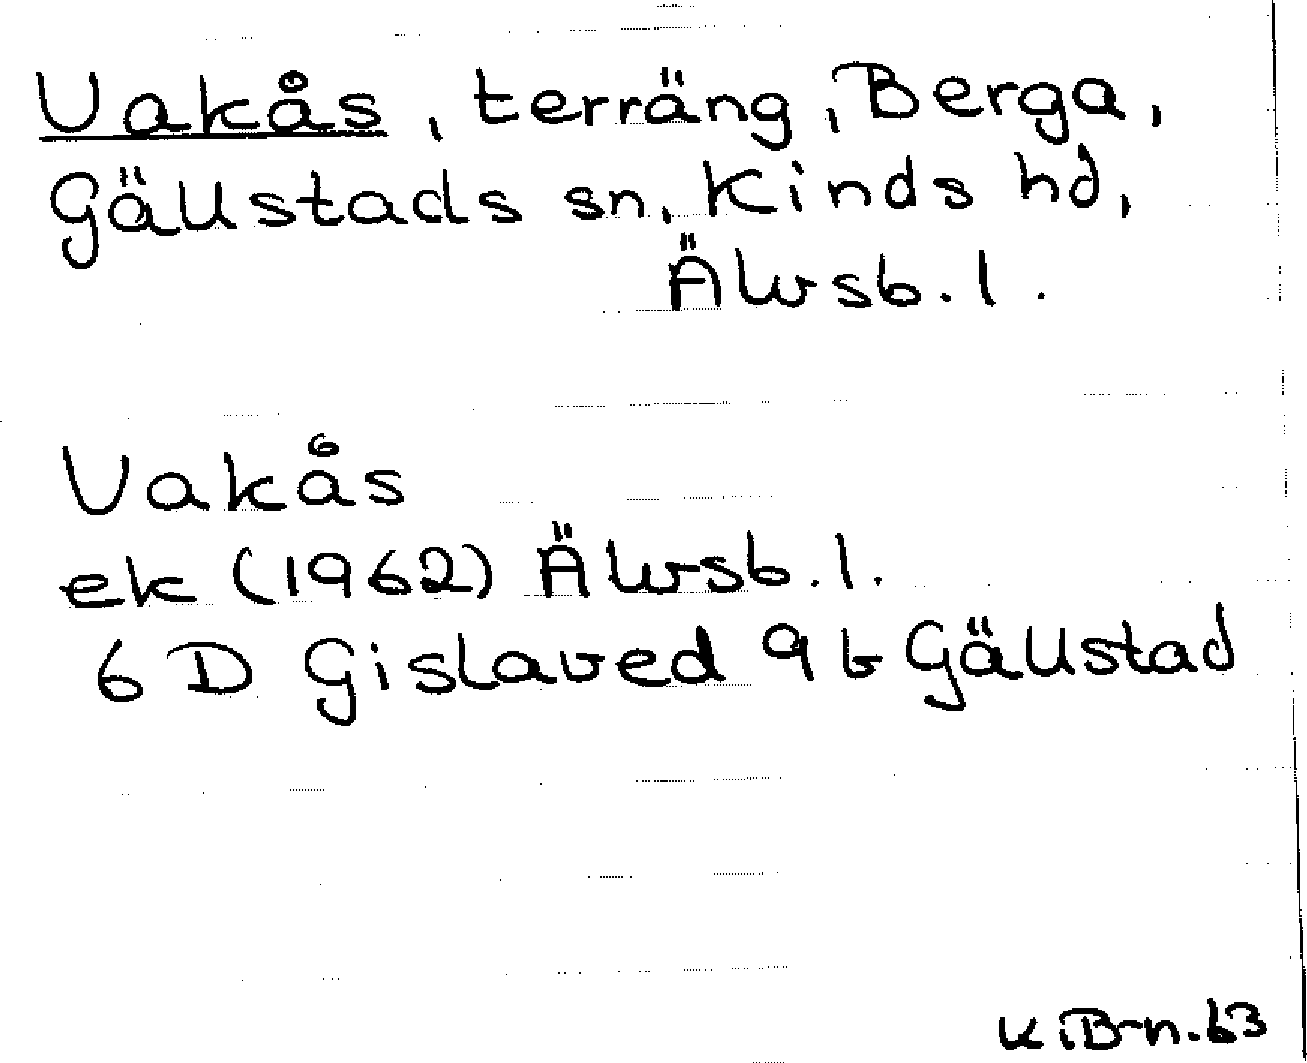 Vakås, terräng, Berga,
Gällstads sn, Kinds hd,
Älvsb. l.
Vakås
ek (1962) Älvsb. l.
6 D Gislaved 9 b Gällstad